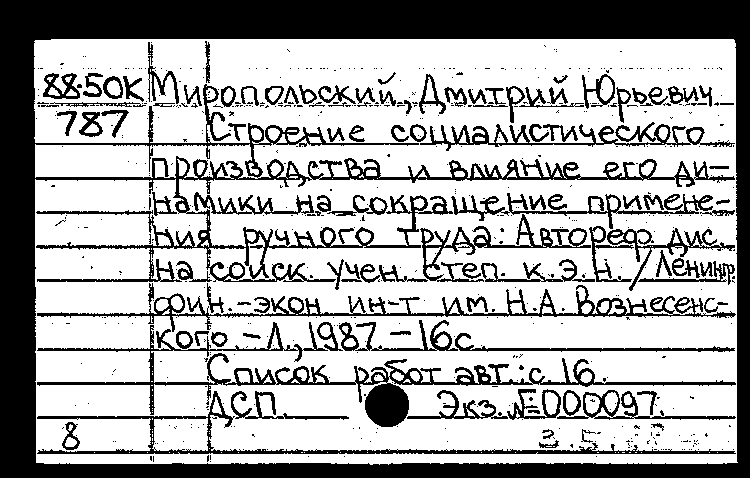 88-50К Миропольский, Дмитрий Юрьевич
787 Строение социалистического
производства и влияние его ди-
намики на сокращение примене-
ния ручного труда: Автореф. дис.
на соиск. учен. степ. к.э.н. / Ленингр.
фин.-экон. ин-т им. Н.А. Вознесенс-
кого. – Л., 1987. – 16с.
Список работ авт.: с. 16.
ДСП. Экз. №000097.
8 3.5.